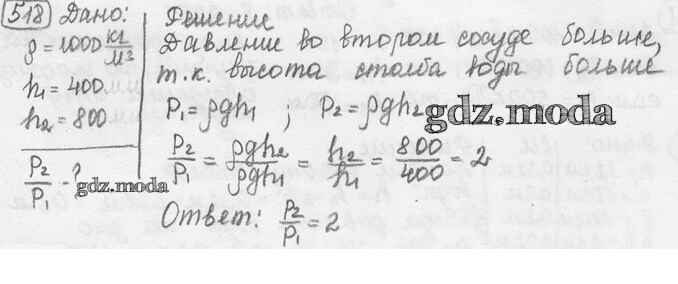 518 Дано:
ρ = 1000 кг/м³
h₁ = 400 мм
h₂ = 800
P₂/P₁ - ?
gdz.moda
Решение
Давление во втором сосуде больше,
т.к. высота столба воды больше
P₁ = ρgh₁ ; P₂ = ρgh₂
gdz.moda
P₂/P₁ = ρgh₂/ρgh₁ = h₂/h₁ = 800/400 = 2
Ответ: P₂/P₁ = 2